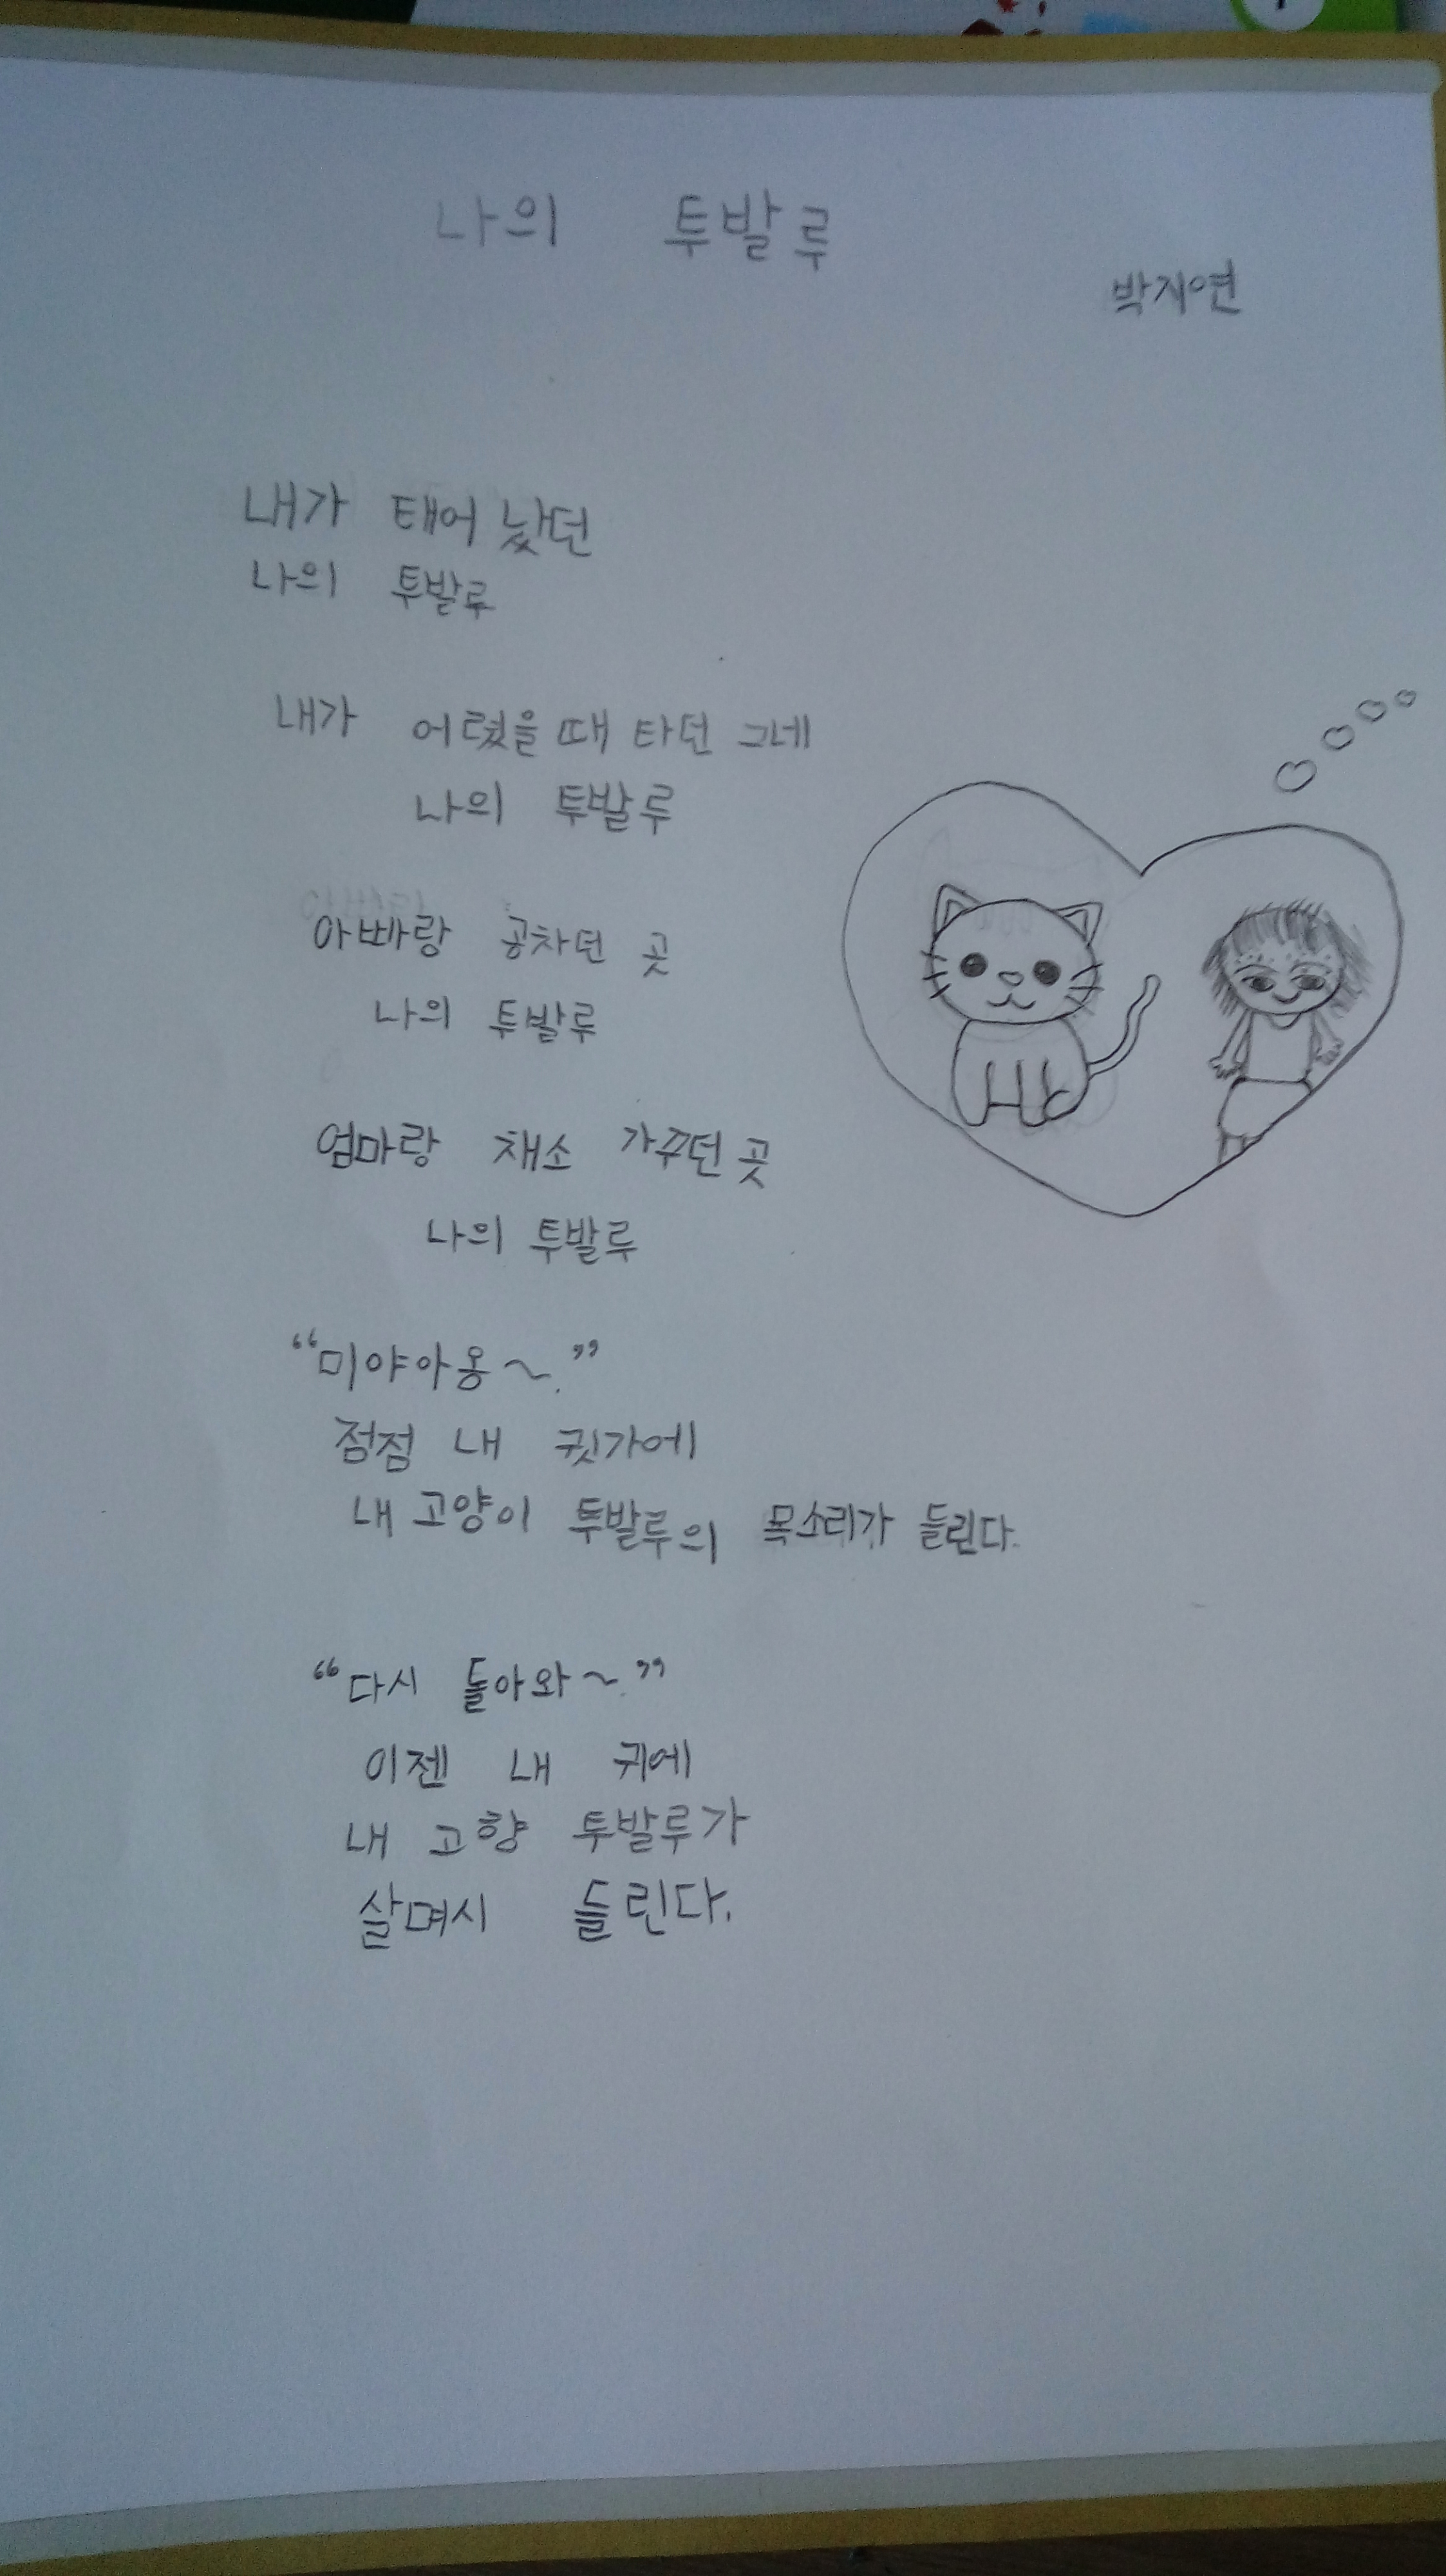 나의 투발루
박지연
내가 태어 났던
나의 투발루
내가 어렸을 때 타던 그네
나의 투발루
아빠랑 공차던 곳
나의 투발루
엄마랑 채소 가꾸던 곳
나의 투발루
“미야아옹~.”
점점 내 귓가에
내 고양이 투발루의 목소리가 들린다.
“다시 돌아와~.”
이젠 내 귀에
내 고향 투발루가
살며시 들린다.